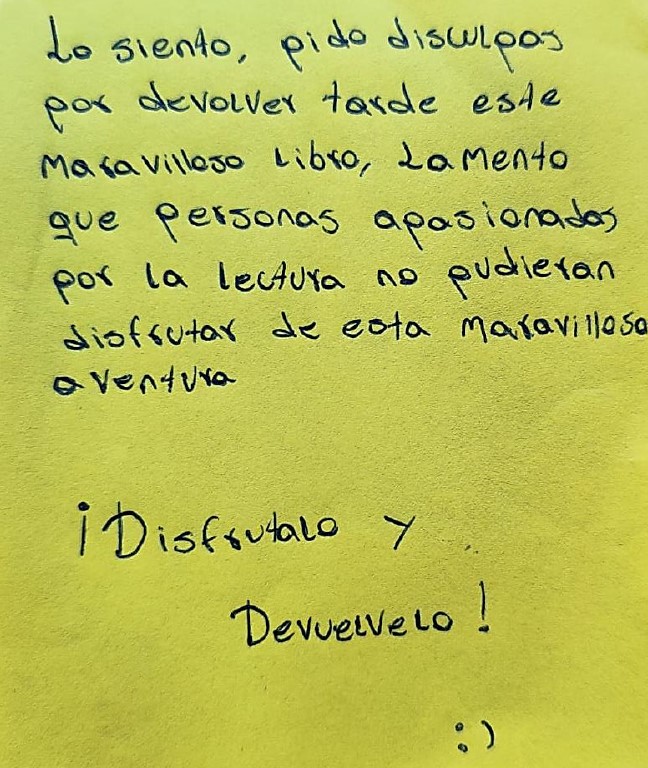 Lo siento, pido disculpas
por devolver tarde este
Maravilloso Libro, Lamento
que personas apasionadas
por la lectura no pudieran
disfrutar de esta Maravillosa
aventura
¡Disfrutalo y
Devuelvelo!
:)